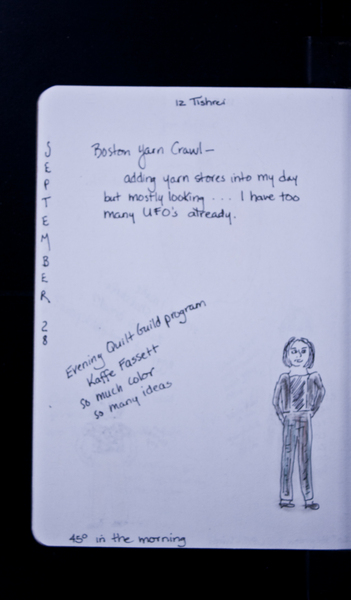 12 Tishrei
SEPTEMBER 28
Boston Yarn Crawl—
adding yarn stores into my day
but mostly looking ... I have too
many UFO's already.
Evening Quilt Guild program
Kaffe Fassett
so much color
so many ideas
45° in the morning